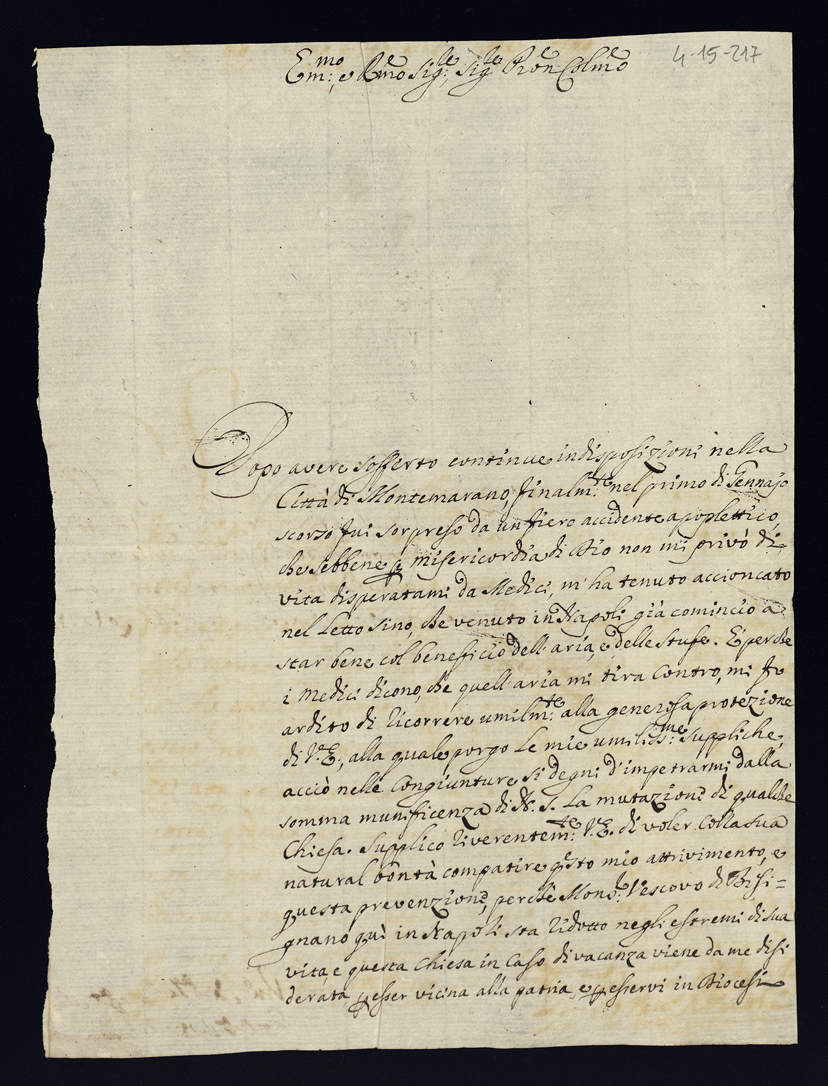 4-15-217
Em:mo, e Rmo Sig:re, Sig:re Pron Colmo
Dopo avere sofferto continue indisposizioni nella
Città di Montemarano, finalm:te nel primo di Gennajo
scorso fui sorpreso da un fiero accidente apoplettico,
che sebbene p misericordia di Dio non mi privò di
vita disperatami da Medici, m'ha tenuto accioncato
nel Letto sino, che venuto in Napoli già comincio a
star bene col beneficio dell'aria, e delle stufe. E perche
i Medici dicono, che quell'aria mi tira contro, mi fo
ardito di ricorrere umilm:te alla generosa protezione
di V.E., alla quale porgo le mie umiliss:me suppliche,
acciò nelle congiunture si degni d'impetrarmi dalla
somma munificenza di N. S. la mutazione di qualche
Chiesa. Supplico riverentem:te V.E. di voler colla sua
natural bontà compatire qsto mio attrivimento, e
questa prevenzione, perche Mons:r Vescovo di Bisi=
gnano quì in Napoli sta ridotto negli estremi di sua
vita, e questa Chiesa in caso di vacanza viene da me disi
derata p esser vicina alla patria, e p esservi in Diocesi